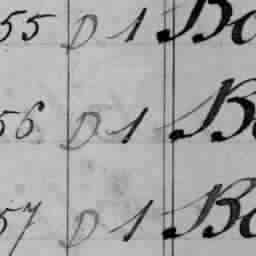 55 D 1 Bo
56 D 1 Bo
57 D 1 Bo